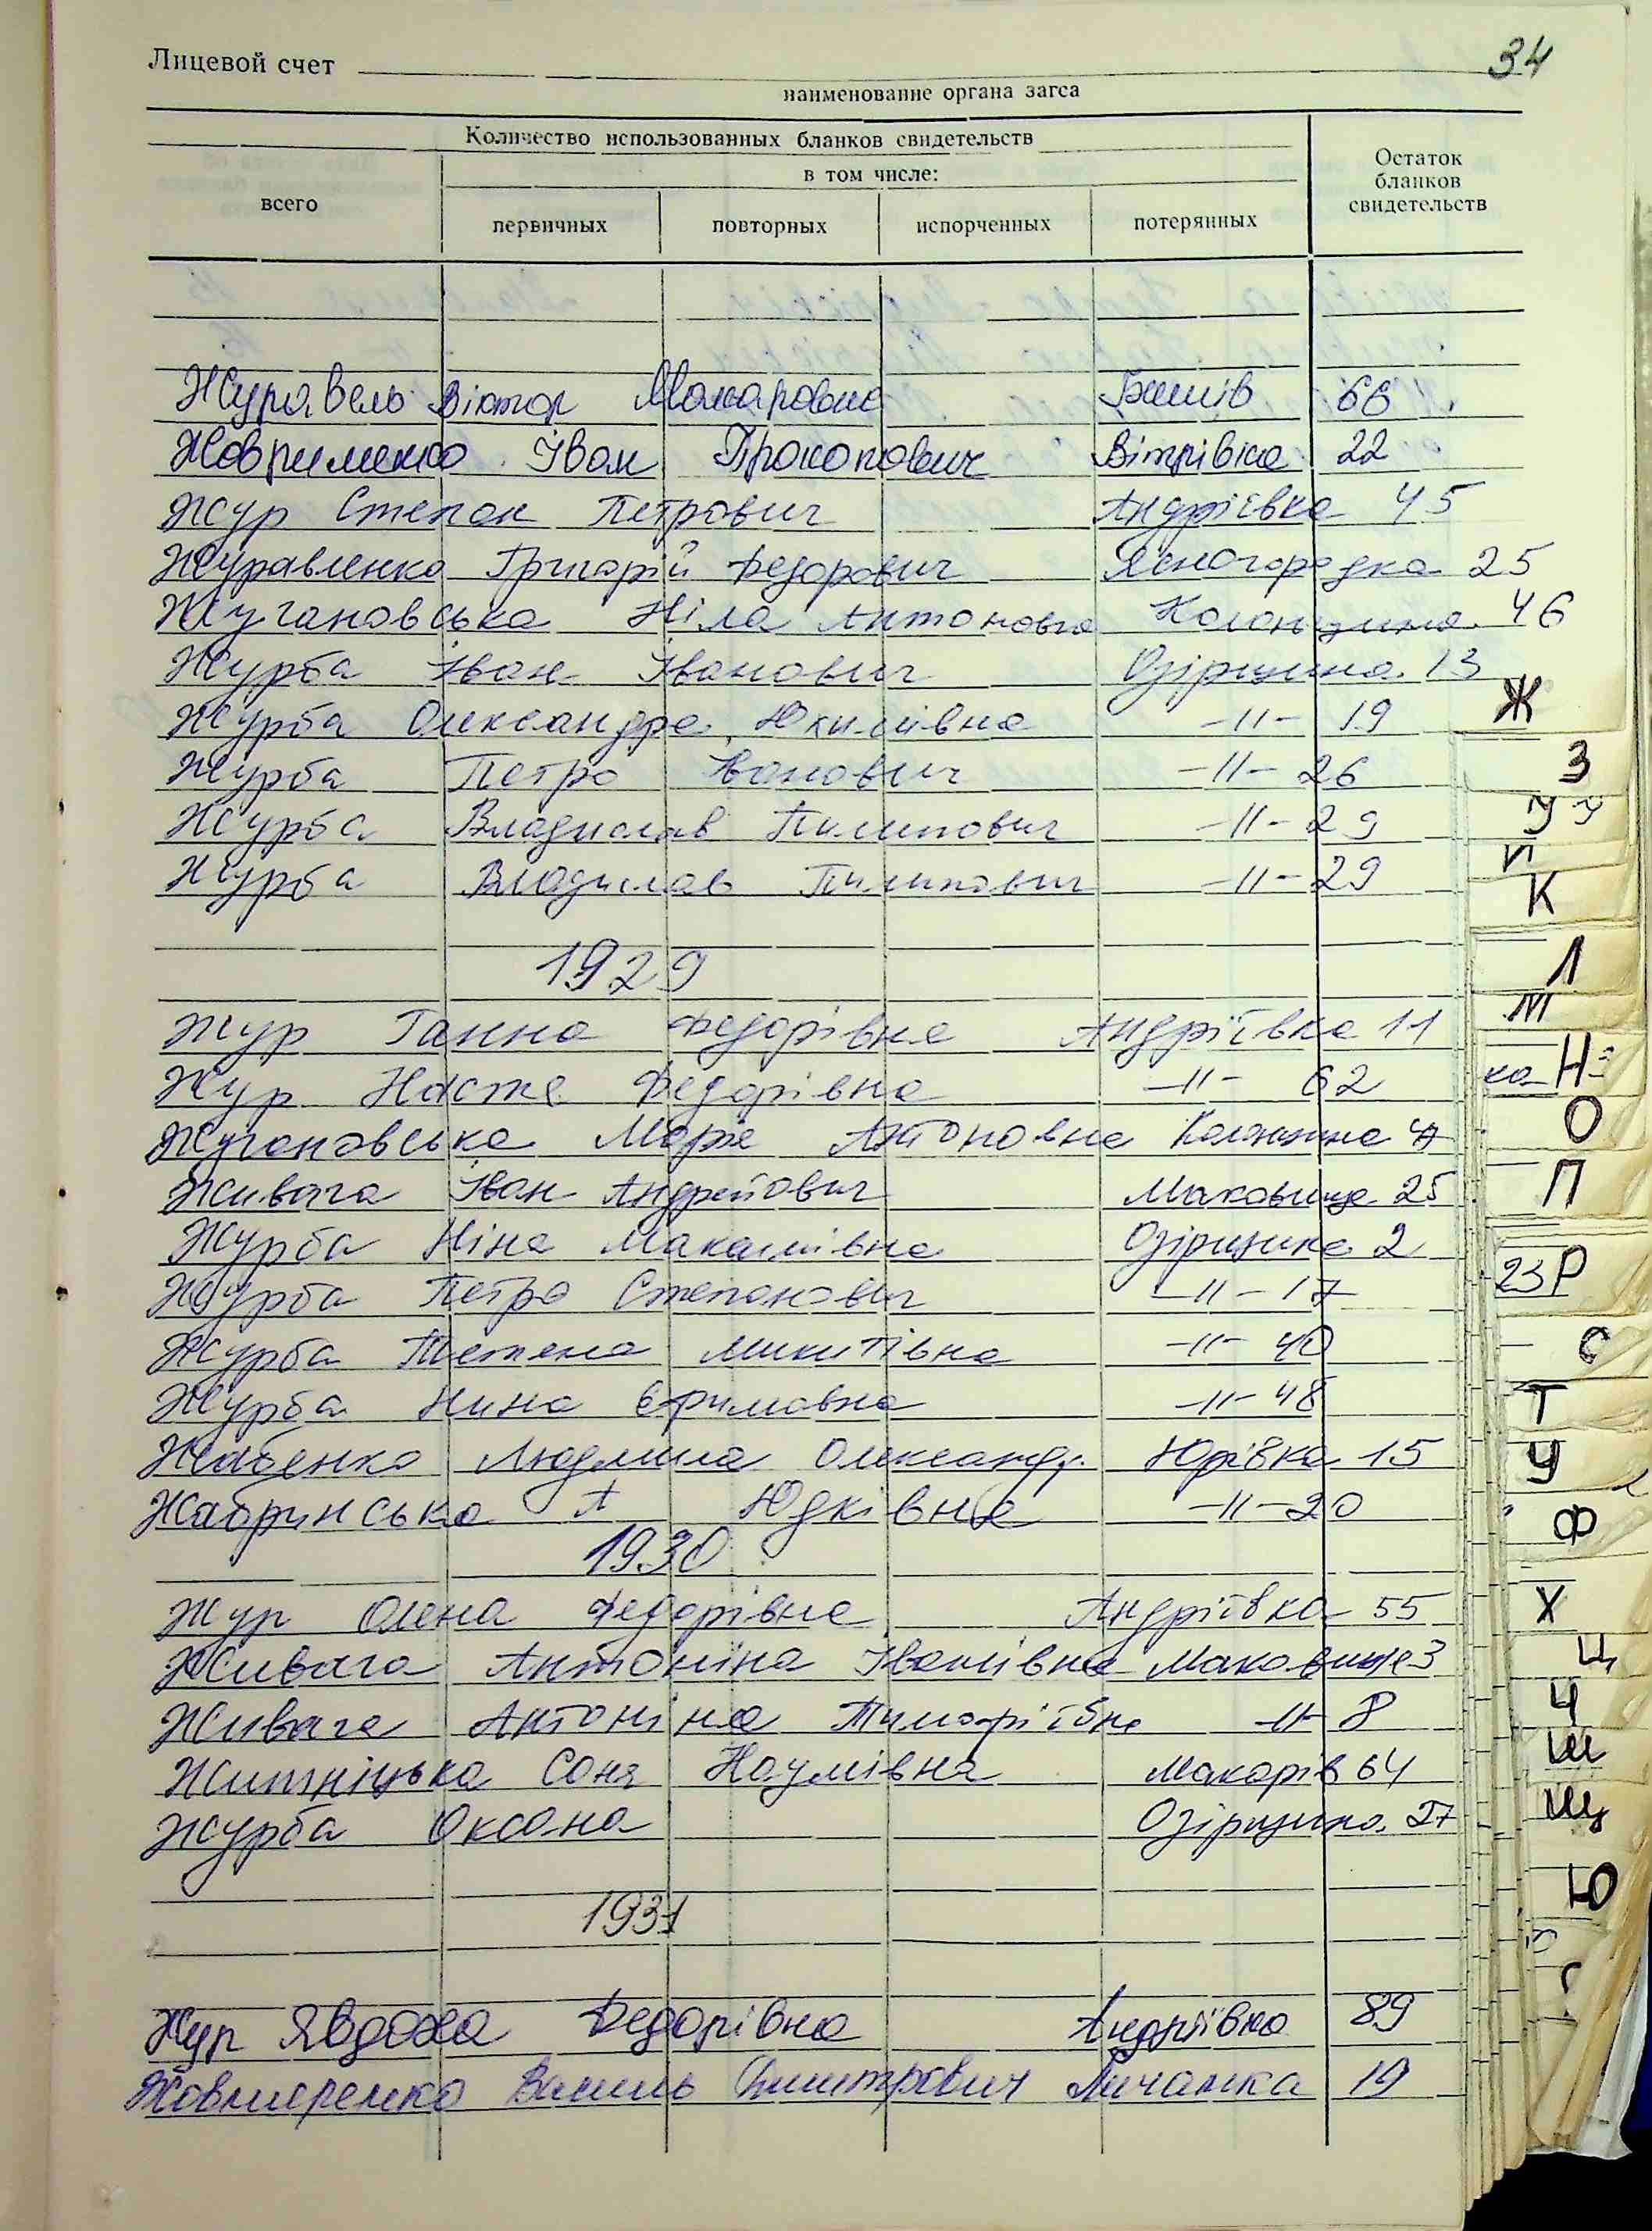 34
Лицевой счет
наименование органа загса
Количество использованных бланков свидетельств
в том числе:
всего
первичных повторных испорченных потерянных
Остаток бланков свидетельств
Журавель Віктор Макарович Бишів 66
Іван Прокопович Вітрівка 22
Жур Степан Петрович Андріївка 45
Журавленко Григорій Федорович Ясногородка 25
Жугановська Ніла Антоновна Колонщина 46
Журба Іван Іванович Озірщина 13
Журба Олександра Юхимівна -ІІ- 19
Журба Петро Іванович -ІІ- 26
Журба Владислав Пилипович -ІІ- 29
Журба Владислав Пилипович -ІІ- 29
1929
Жур Ганна Федорівна Андріївка 11
Жур Настя Федорівна -ІІ- 62
Жугановська Марія Антоновна Колонщина
Живага Іван Андрейович Маковище 25
Журба Ніна Максимівна Озірщина 2
Журба Петро Степанович -ІІ- 17
Журба Тетяна Микитівна -ІІ- 40
Журба Нина Єфимовна -ІІ- 48
Жабенко Людмила Олександр. Юрівка 15
Жабринська А Юдківна -ІІ- 20
1930
Жур Олена Федорівна Андріївка 55
Живага Антоніна Іванівна Маковище 3
Живага Антоніна Тимофіївна -ІІ- 8
Житніцька Соня Наумівна Макарів 64
Журба Оксана Озірщина 27
1931
Жур Явдоха Федорівна Андріївка 89
Василь Дмитрович Личанка 19
Ж
З
У У
И
К
Л
М
ко Н
О
П
23 Р
С
Т
У
Ф
Х
Ц
Ч
Ш
Щ
Ю